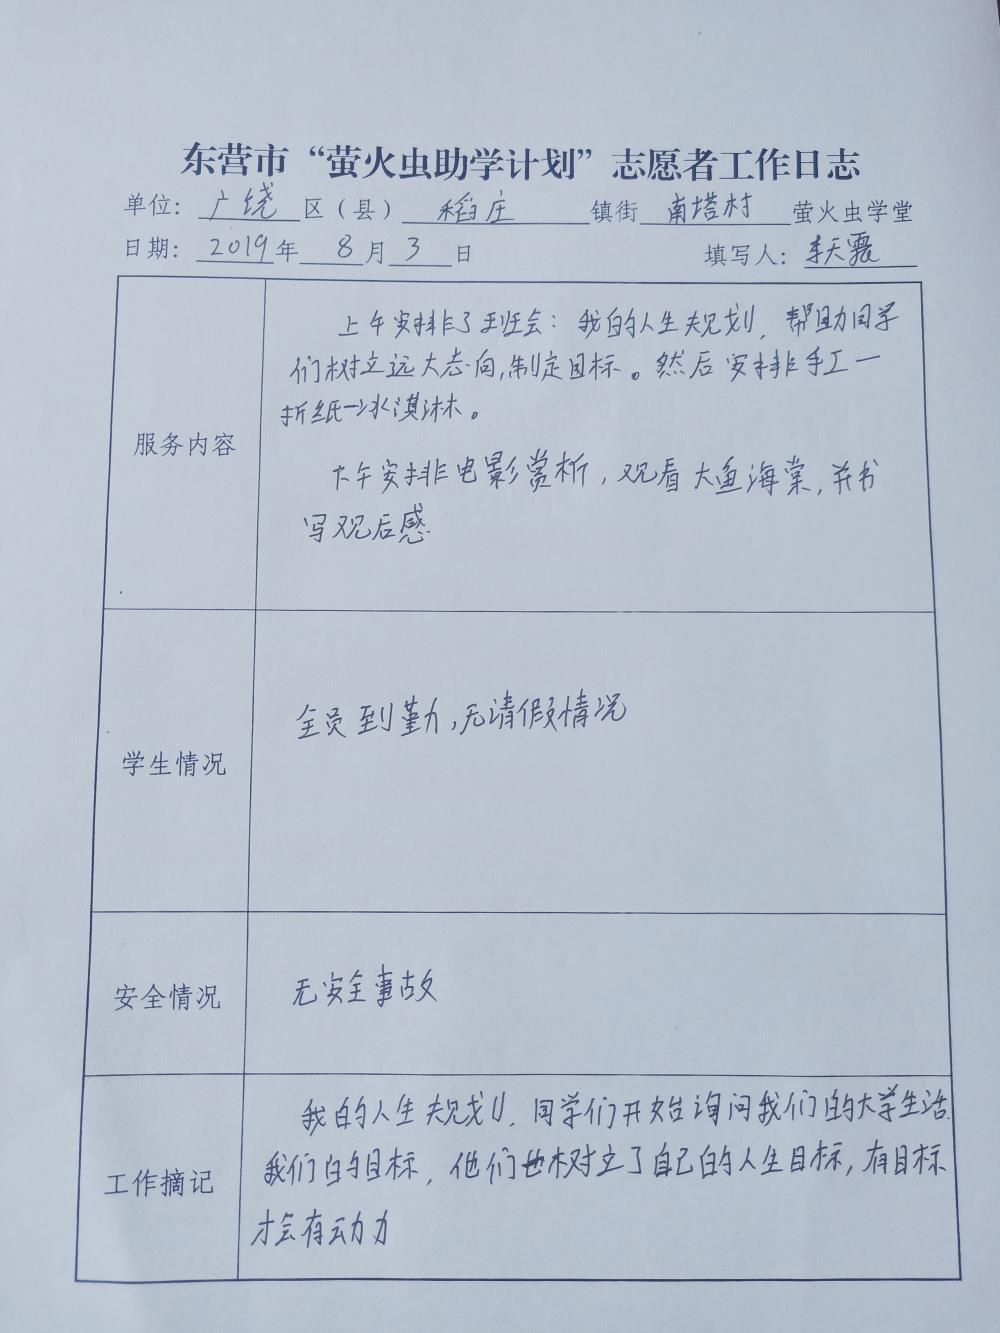 东营市“萤火虫助学计划”志愿者工作日志
单位：广饶区（县）稻庄镇街南塔村萤火虫学堂
日期：2019年8月3日 填写人：李天霞
服务内容
上午安排了班会：我的人生规划，帮助同学
们树立远大志向，制定目标。然后安排手工一
折纸一冰淇淋。
下午安排电影赏析，观看大鱼海棠，并书
写观后感
学生情况
全员到勤，无请假情况
安全情况
无安全事故
工作摘记
我的人生规划，同学们开始询问我们的大学生活，
我们的目标，他们也树立了自己的人生目标，有目标
才会有动力